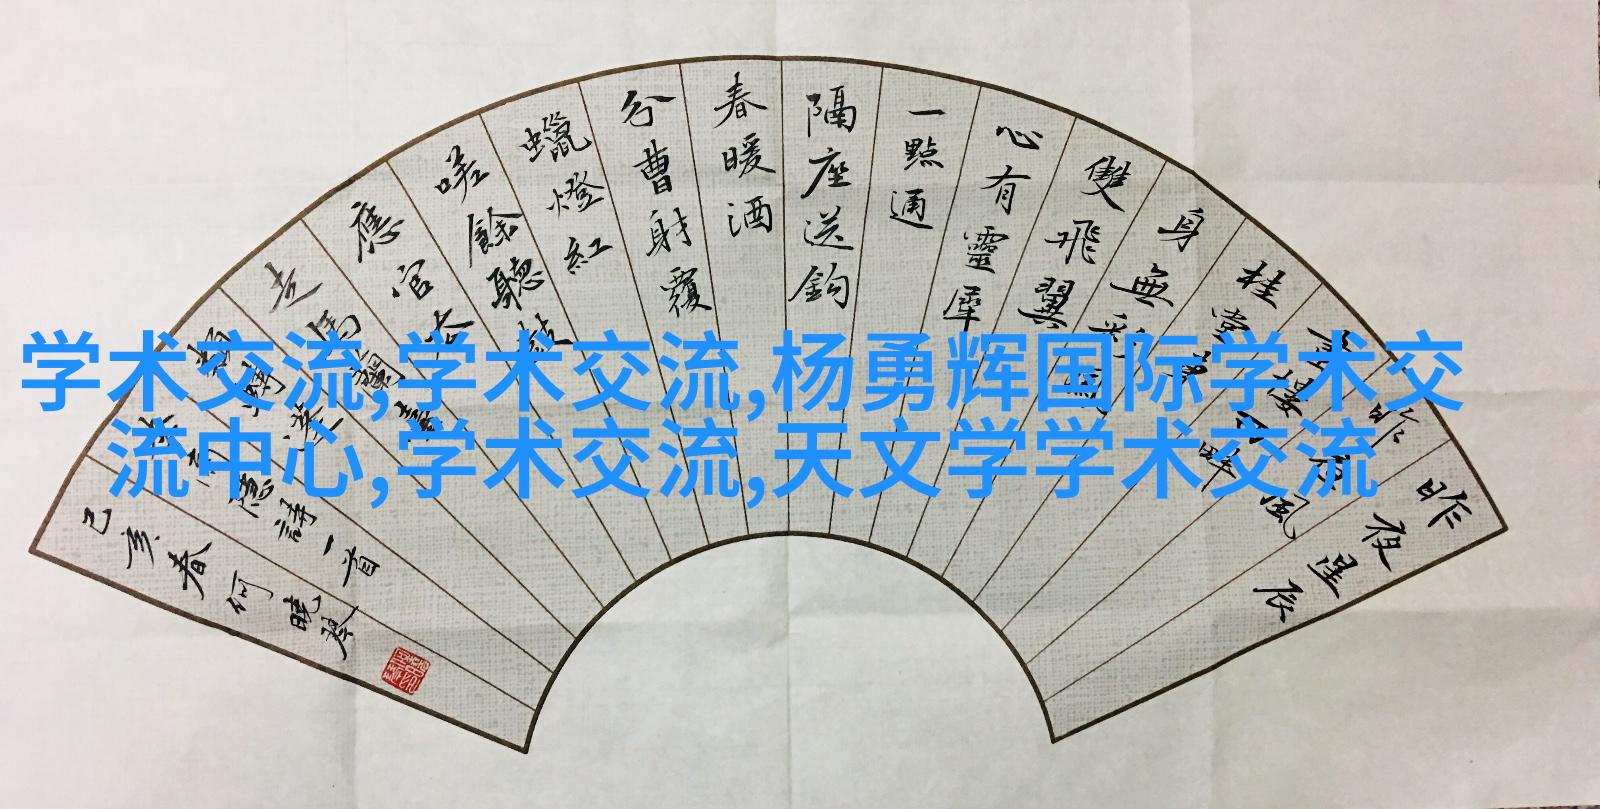 昨夜星辰
昨夜風
畫樓西畔
桂堂東
身無彩鳳
雙飛翼
心有靈犀
一點通
隔座送鈎
春暖酒
分曹射覆
蠟燈紅
嗟餘聽鼓
應官去
走馬蘭臺
類轉蓬
李商隱詩一首
己亥春何曉琴
学术交流,学术交流,杨勇辉国际学术交
流中心,学术交流,天文学学术交流